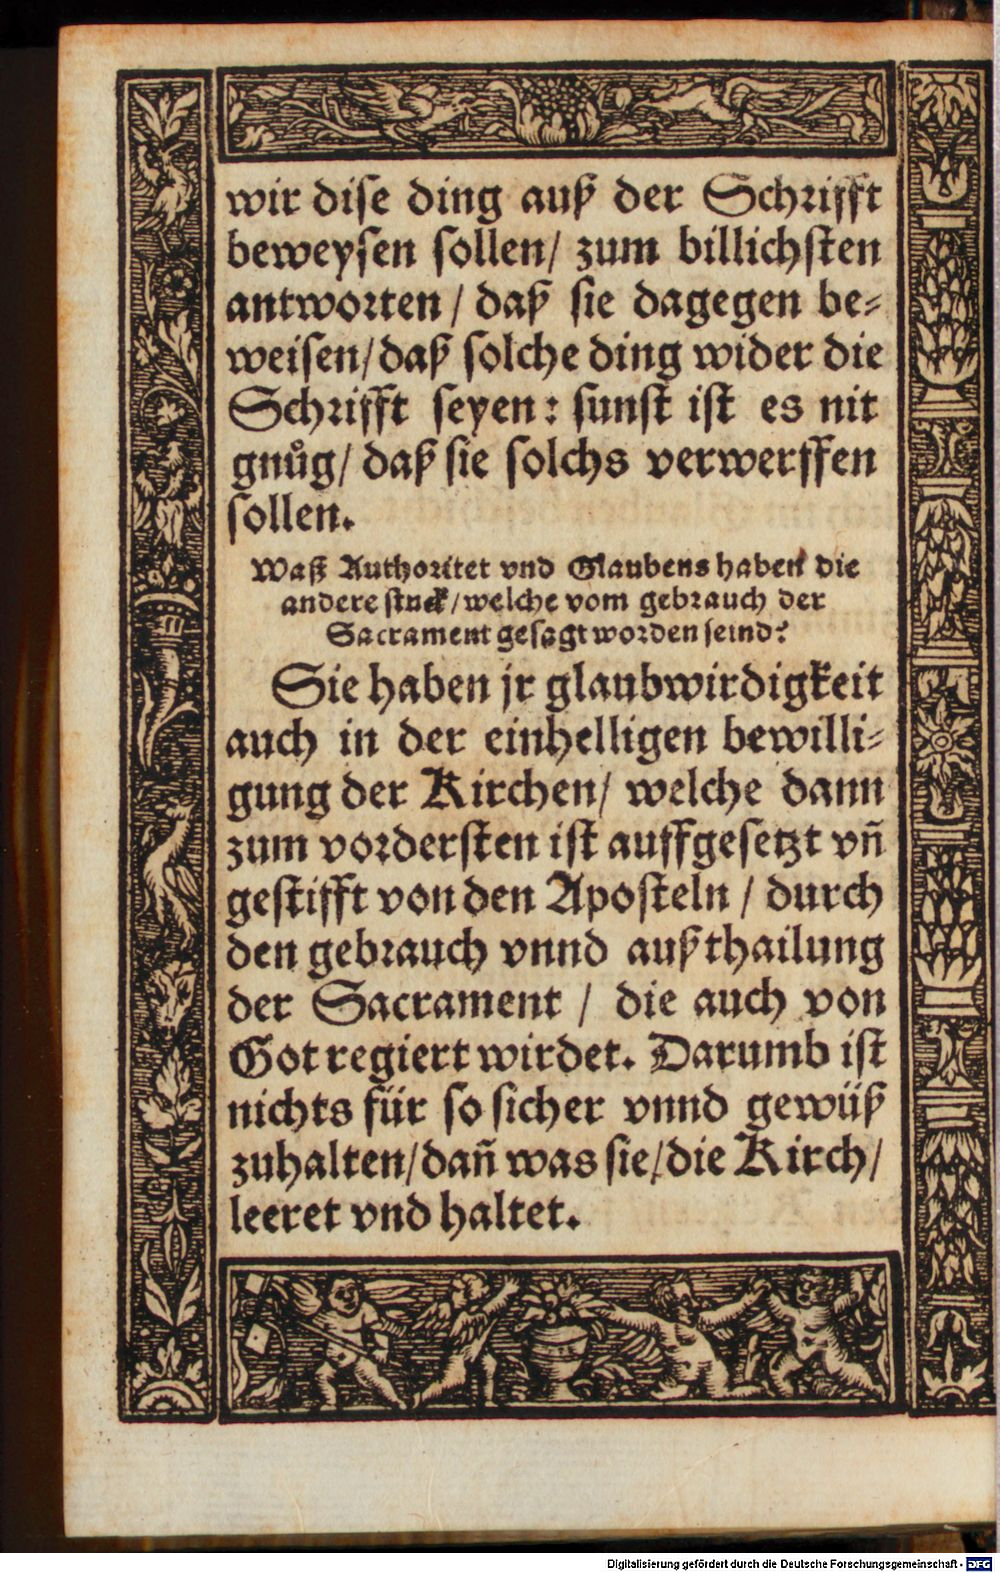 wir dise ding auß der Schrifft
beweysen sollen/ zum billichsten
antworten / daß sie dagegen be-
weisen/daß solche ding wider die
Schrifft seyen: sunst ist es nit
gnůg/ daß sie solchs verwerffen
sollen.
Waß Authoritet vnd Glaubens haben die
andere stuck/welche vom gebrauch der
Sacrament gesagt worden seind?
Sie haben jr glaubwirdigkeit
auch in der einhelligen bewilli-
gung der Kirchen/ welche dann
zum vordersten ist auffgesetzt vñ
gestifft von den Aposteln / durch
den gebrauch vnnd außthailung
der Sacrament / die auch von
Got regiert wirdet. Darumb ist
nichts für so sicher vnnd gewüß
zuhalten/dañ was sie/die Kirch/
leeret vnd haltet.
Digitalisierung gefördert durch die Deutsche Forschungsgemeinschaft - DFG